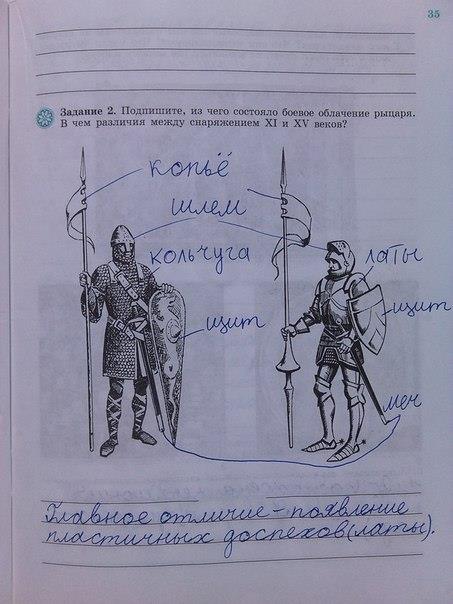 35
Задание 2. Подпишите, из чего состояло боевое облачение рыцаря.
В чем различия между снаряжением XI и XV веков?
копьё
шлем
кольчуга
латы
щит
щит
меч
Главное отличие - появление
пластичных доспехов (латы).